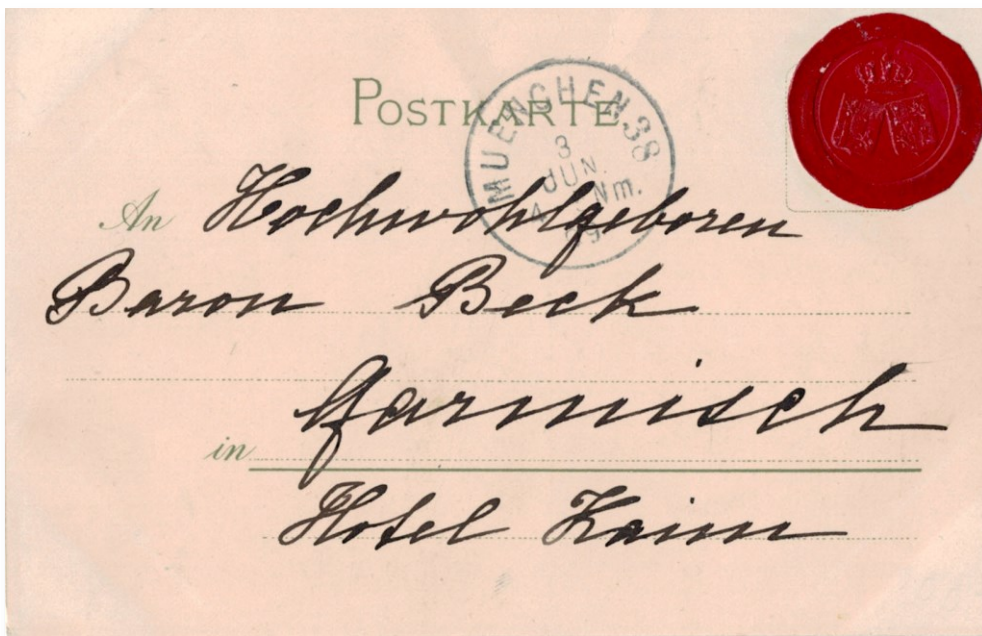 POSTKARTE
MUENCHEN 38
3
JUN.
Nm.
An Hochwohlgeboren
Baron Beck
in Garmisch
Hotel Kainz